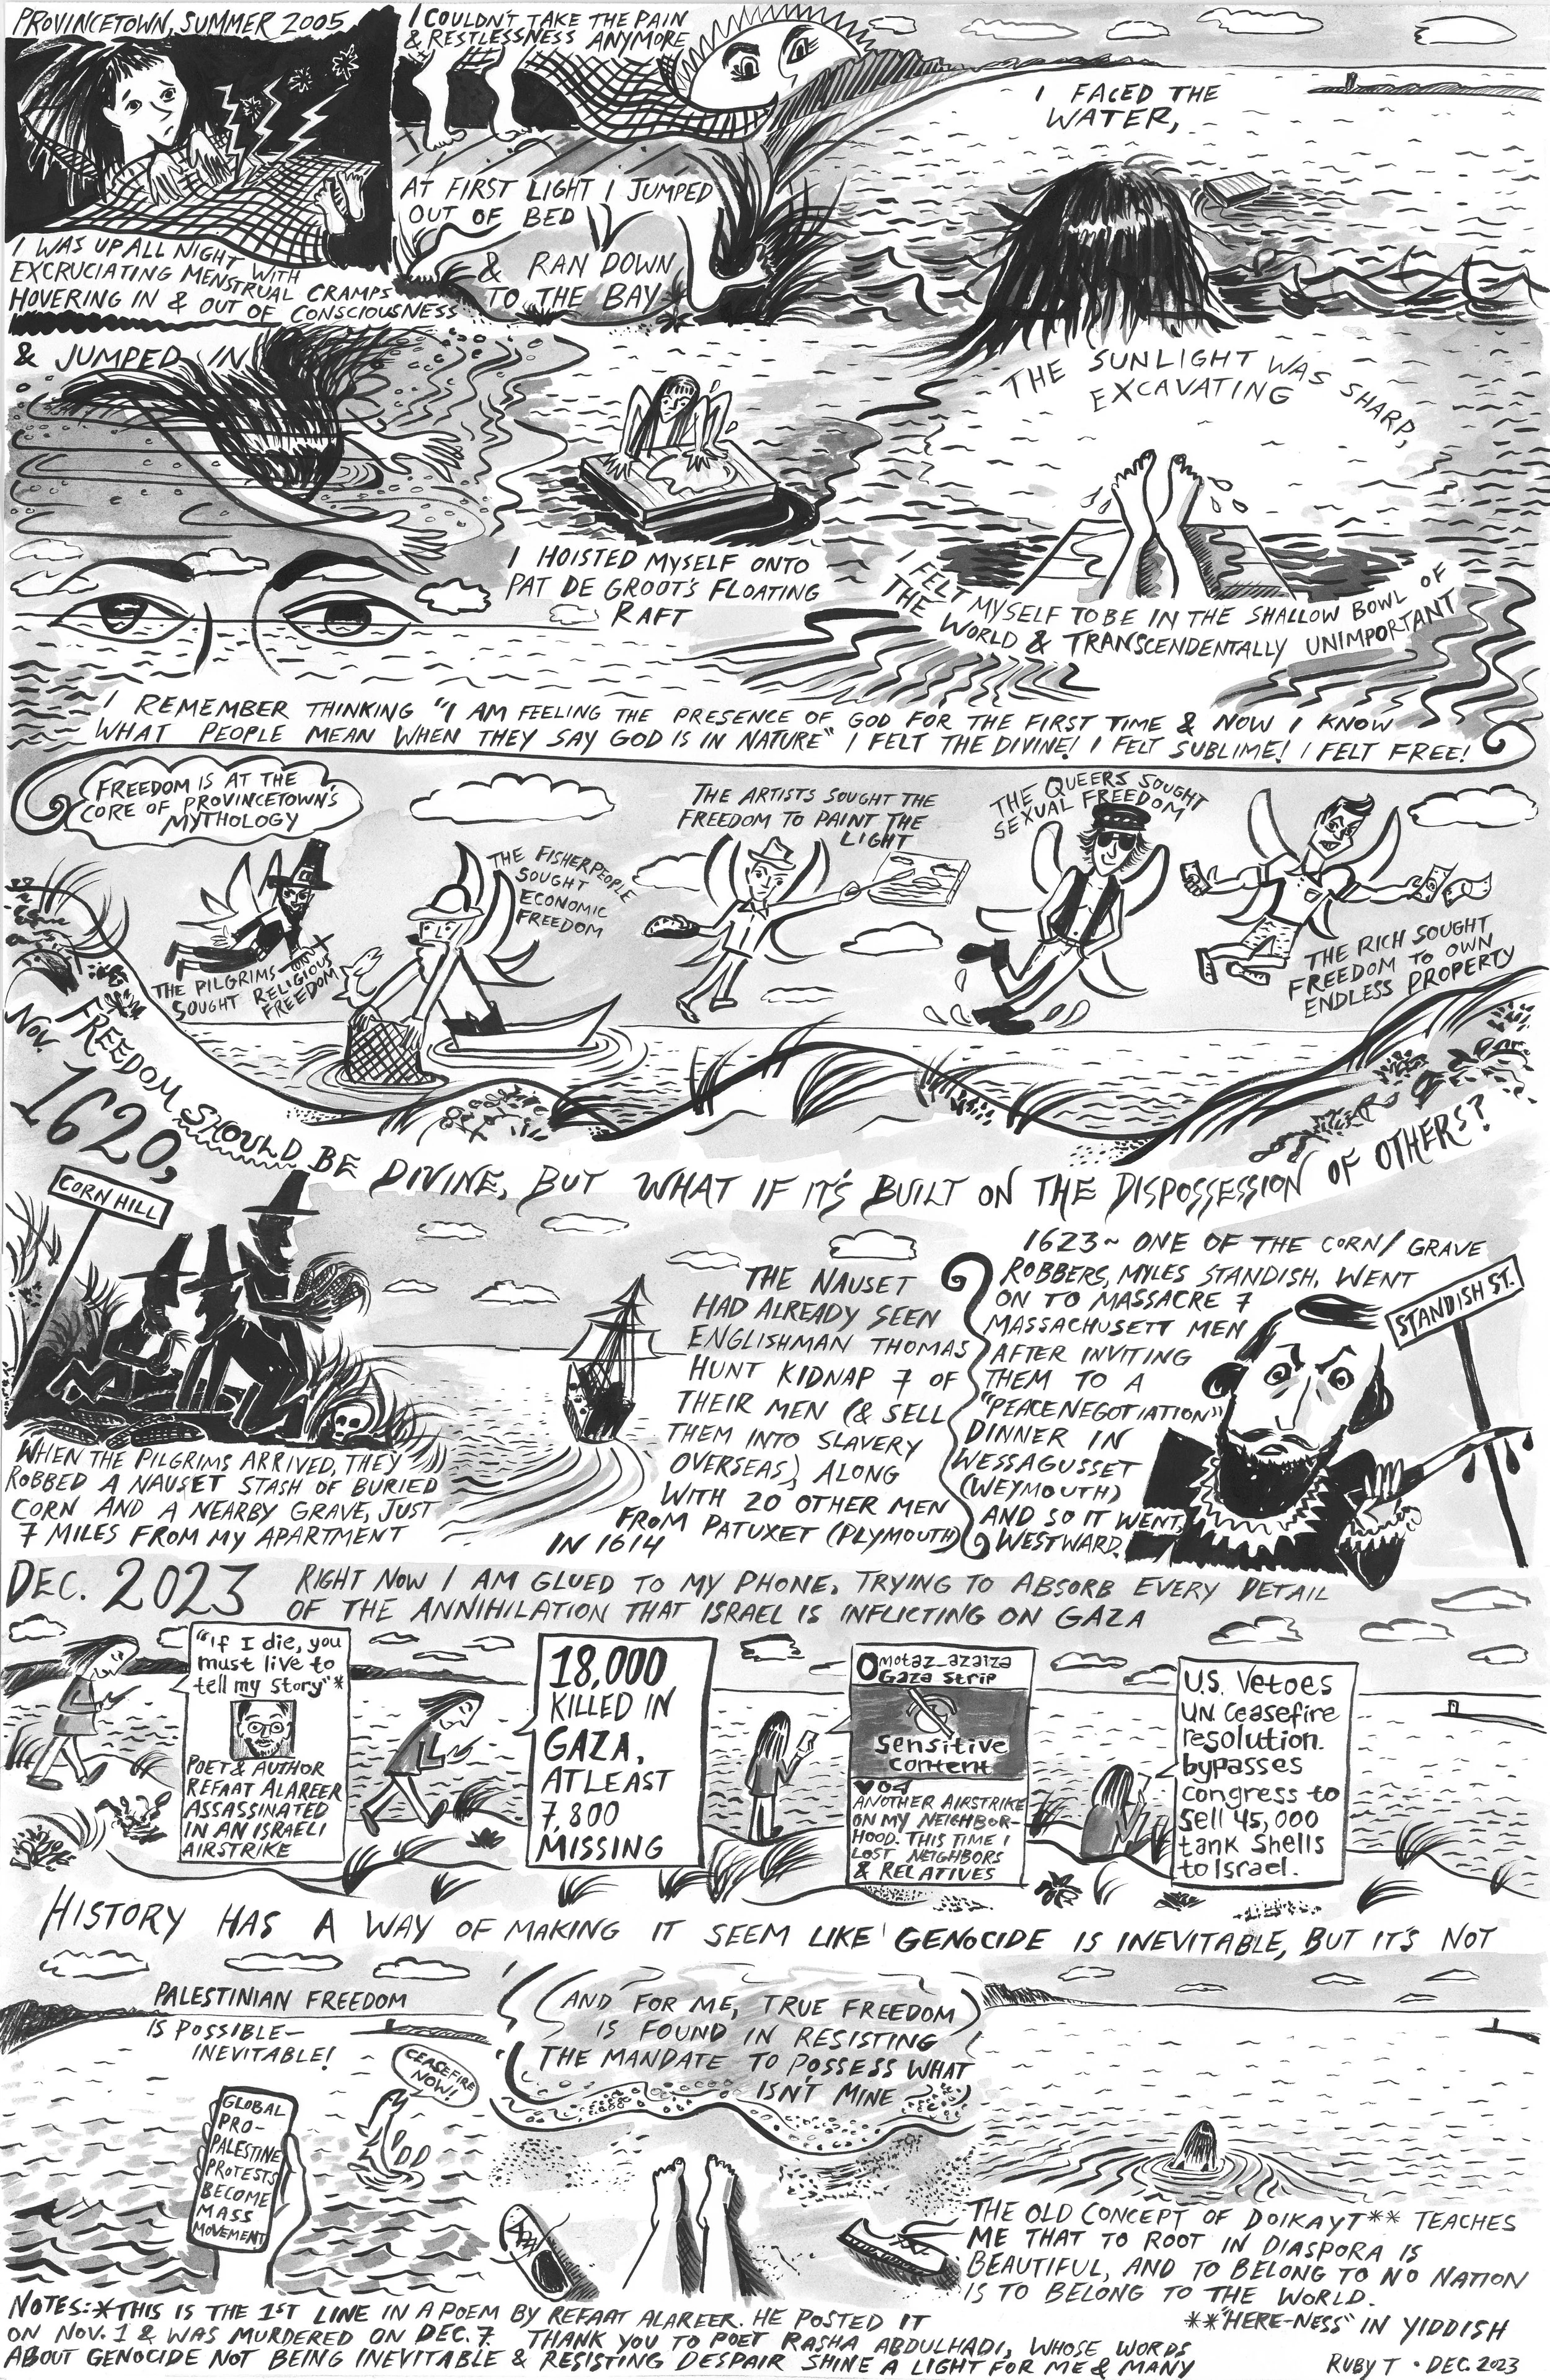 PROVINCETOWN, SUMMER 2005
I WAS UP ALL NIGHT WITH
EXCRUCIATING MENSTRUAL CRAMPS
HOVERING IN & OUT OF CONSCIOUSNESS
I COULDN'T TAKE THE PAIN
& RESTLESSNESS ANYMORE
AT FIRST LIGHT I JUMPED
OUT OF BED
& RAN DOWN
TO THE BAY
I FACED THE
WATER,
& JUMPED IN
THE SUNLIGHT WAS SHARP,
EXCAVATING
I HOISTED MYSELF ONTO
PAT DE GROOT'S FLOATING
RAFT
I FELT MYSELF TO BE IN THE SHALLOW BOWL OF
THE WORLD & TRANSCENDENTALLY UNIMPORTANT
I REMEMBER THINKING "I AM FEELING THE PRESENCE OF GOD FOR THE FIRST TIME & NOW I KNOW
WHAT PEOPLE MEAN WHEN THEY SAY GOD IS IN NATURE" I FELT THE DIVINE! I FELT SUBLIME! I FELT FREE!
FREEDOM IS AT THE
CORE OF PROVINCETOWN'S
MYTHOLOGY
THE PILGRIMS
SOUGHT RELIGIOUS
FREEDOM
THE FISHERPEOPLE
SOUGHT
ECONOMIC
FREEDOM
THE ARTISTS SOUGHT THE
FREEDOM TO PAINT THE
LIGHT
THE QUEERS SOUGHT
SEXUAL FREEDOM
THE RICH SOUGHT
FREEDOM TO OWN
ENDLESS PROPERTY
FREEDOM SHOULD BE DIVINE, BUT WHAT IF IT'S BUILT ON THE DISPOSSESSION OF OTHERS?
NOV.
1620,
CORN HILL
WHEN THE PILGRIMS ARRIVED, THEY
ROBBED A NAUSET STASH OF BURIED
CORN AND A NEARBY GRAVE, JUST
7 MILES FROM MY APARTMENT
THE NAUSET
HAD ALREADY SEEN
ENGLISHMAN THOMAS
HUNT KIDNAP 7 OF
THEIR MEN (& SELL
THEM INTO SLAVERY
OVERSEAS) ALONG
WITH 20 OTHER MEN
FROM PATUXET (PLYMOUTH)
IN 1614
1623~ ONE OF THE CORN/GRAVE
ROBBERS, MYLES STANDISH, WENT
ON TO MASSACRE 7
MASSACHUSETT MEN
AFTER INVITING
THEM TO A
"PEACE NEGOTIATION"
DINNER IN
WESSAGUSSET
(WEYMOUTH)
AND SO IT WENT,
WESTWARD.
STANDISH ST.
DEC. 2023
RIGHT NOW I AM GLUED TO MY PHONE, TRYING TO ABSORB EVERY DETAIL
OF THE ANNIHILATION THAT ISRAEL IS INFLICTING ON GAZA
"If I die, you
must live to
tell my story"*
POET & AUTHOR
REFAAT ALAREER
ASSASSINATED
IN AN ISRAELI
AIRSTRIKE
18,000
KILLED IN
GAZA,
AT LEAST
7,800
MISSING
motaz_azaiza
Gaza Strip
Sensitive
content
ANOTHER AIRSTRIKE
ON MY NEIGHBOR-
HOOD. THIS TIME I
LOST NEIGHBORS
& RELATIVES
U.S. Vetoes
UN Ceasefire
resolution.
bypasses
congress to
sell 45,000
tank shells
to Israel.
HISTORY HAS A WAY OF MAKING IT SEEM LIKE GENOCIDE IS INEVITABLE, BUT IT'S NOT
PALESTINIAN FREEDOM
IS POSSIBLE–
INEVITABLE!
GLOBAL
PRO-
PALESTINE
PROTESTS
BECOME
MASS
MOVEMENT
CEASEFIRE
NOW!
AND FOR ME, TRUE FREEDOM
IS FOUND IN RESISTING
THE MANDATE TO POSSESS WHAT
ISN'T MINE
THE OLD CONCEPT OF DOIKAYT** TEACHES
ME THAT TO ROOT IN DIASPORA IS
BEAUTIFUL, AND TO BELONG TO NO NATION
IS TO BELONG TO THE WORLD.
**"HERE-NESS" IN YIDDISH
NOTES: *THIS IS THE 1ST LINE IN A POEM BY REFAAT ALAREER. HE POSTED IT
ON NOV. 1 & WAS MURDERED ON DEC. 7. THANK YOU TO POET RASHA ABDULHADI, WHOSE WORDS
ABOUT GENOCIDE NOT BEING INEVITABLE & RESISTING DESPAIR SHINE A LIGHT FOR ME & MANY
RUBY T • DEC. 2023